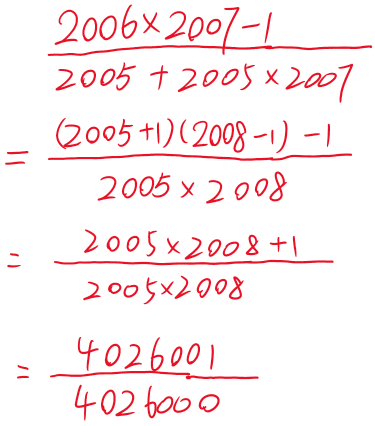 2006×2007-1
2005+2005×2007
=
(2005+1)(2008-1)-1
2005×2008
=
2005×2008+1
2005×2008
=
4026001
4026000